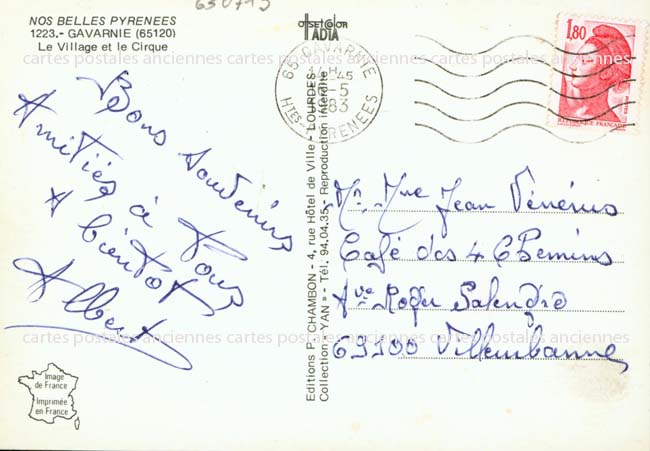 630715
NOS BELLES PYRENEES
1223.- GAVARNIE (65120)
Le Village et le Cirque
Bons souvenirs
Amitiés à Tous
A bientôt
Albert
Image
de France
Imprimée
en France
Editions P. CHAMBON - 4, rue Hôtel de Ville - LOURDES
Collection « YAN » - Tél. 94.04.35. Reproduction interdite
offset color
IADIA
65 GAVARNIE
14H45
-5
1983
HTES-PYRENEES
1,80
REPUBLIQUE FRANÇAISE
Mr, Mme Jean Vénérius
Café des 4 Chemins
Ave Roger Salengro
69100 Villeurbanne
cartes postales anciennes cartes postales anciennes cartes postales anciennes
cartes postales anciennes cartes postales anciennes cartes postales anciennes